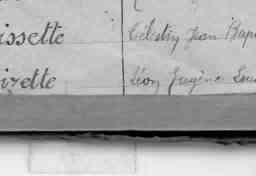 issette Célestin Jean Bap
izette Léon Eugène Lou